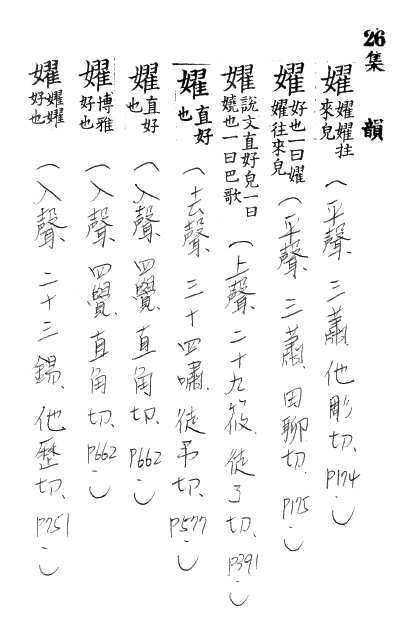 26集韻
嬥嬥嬥往來皃(平聲、三蕭、他彫切、P174)
嬥好也一曰嬥嬥往來皃(平聲、三蕭、田聊切、P175)
嬥說文直好皃一曰嬈也一曰巴歌(上聲、二十九筱、徒了切、P391)
嬥直好也(去聲、三十四嘯、徒弔切、P577)
嬥直好也(入聲、四覺、直角切、P662)
嬥博雅好也(入聲、四覺、直角切、P662)
嬥嬥嬥好也(入聲、二十三錫、他歷切、P751)